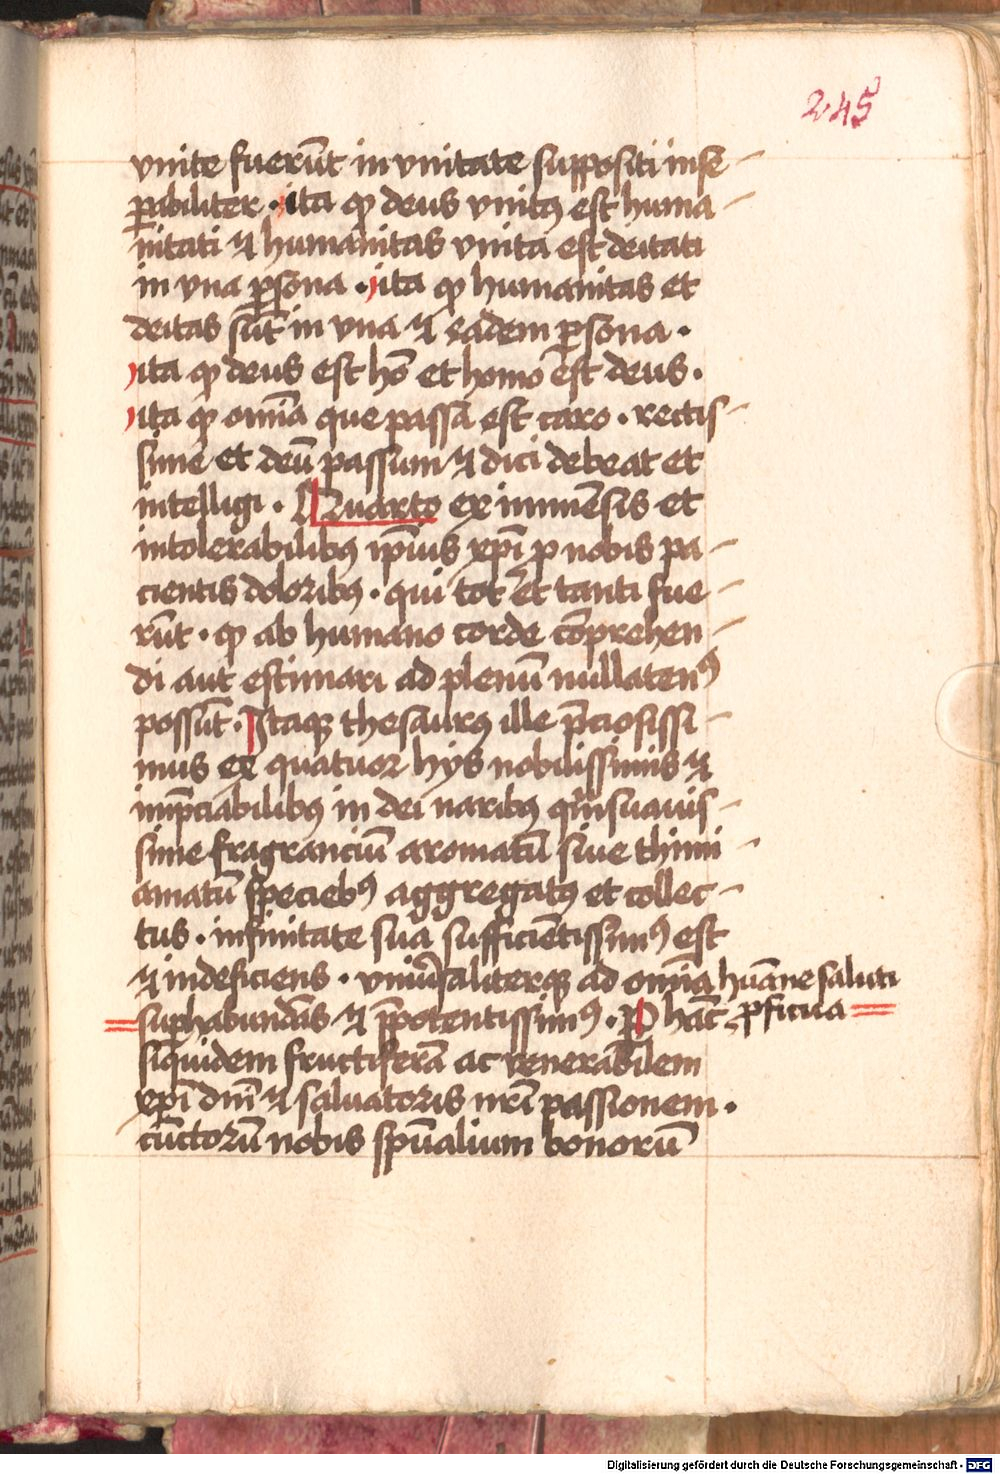 245
vnite fuerūt in vnitate suppositi inse
ꝑabiliter . ita ꝙ deus vnitꝰ est huma
nitati ⁊ humanitas vnita est deitati
in vna ꝑsona . ita ꝙ humanitas et
deitas sūt in vna ⁊ eadem ꝑsona .
ita ꝙ deus est hō et homo est deus .
ita ꝙ om̄ia que passa est caro . rectis
sime et deū passum ⁊ dici debeat et
intelligi . Quarto ex immēsis et
intolerabilibꝰ ip̄ius xp̄i ꝓ nobis pa
cientis doloribꝰ . qui tot et tanti fue
rūt . ꝙ ab humano corde cōprehen
di aut estimari ad plenū nullatenꝰ
possūt . Itaqꝫ thesaurꝰ ille p̄ciosissi
mus ex quatuor hys nobilissimis ⁊
inp̄ciabilibꝰ in dei naribꝰ suauis
sime fragranciū aromatū siue thimi
amatū speciebꝰ aggregatꝰ et collec
tus . infinitate sua sufficiētissimꝰ est
⁊ indeficiens . vniuersaliterqꝫ ad om̄ia hūane saluti
ꝓficua
suphabundās ⁊ p̄potentissimꝰ . P hāc
siquidem fructiferā ac venerabilem
xp̄i dn̄i ⁊ saluatoris nr̄i passionem .
cūctorū nobis sp̄ualium bonorū
Digitalisierung gefördert durch die Deutsche Forschungsgemeinschaft - DFG